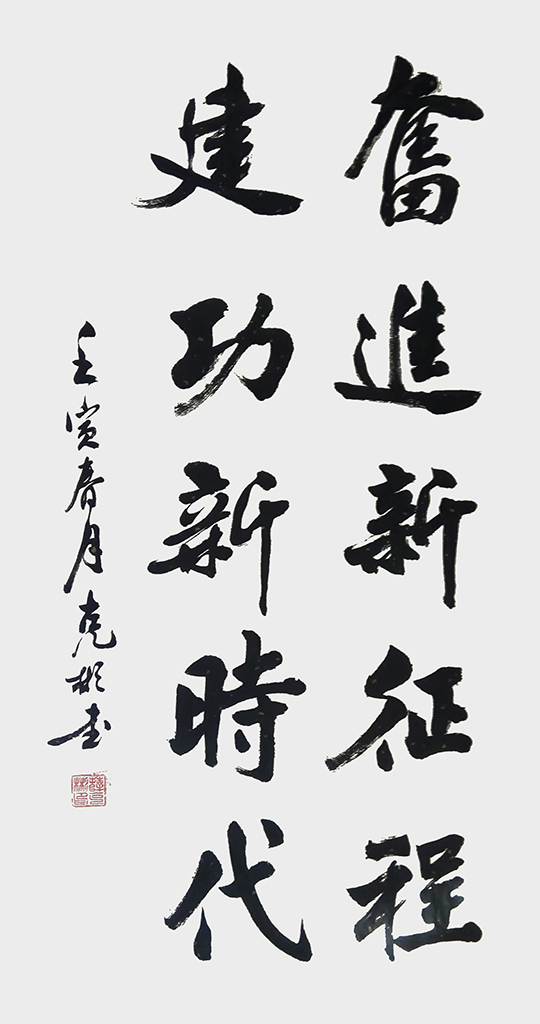 奮進新征程
建功新時代
壬寅春月克彬书